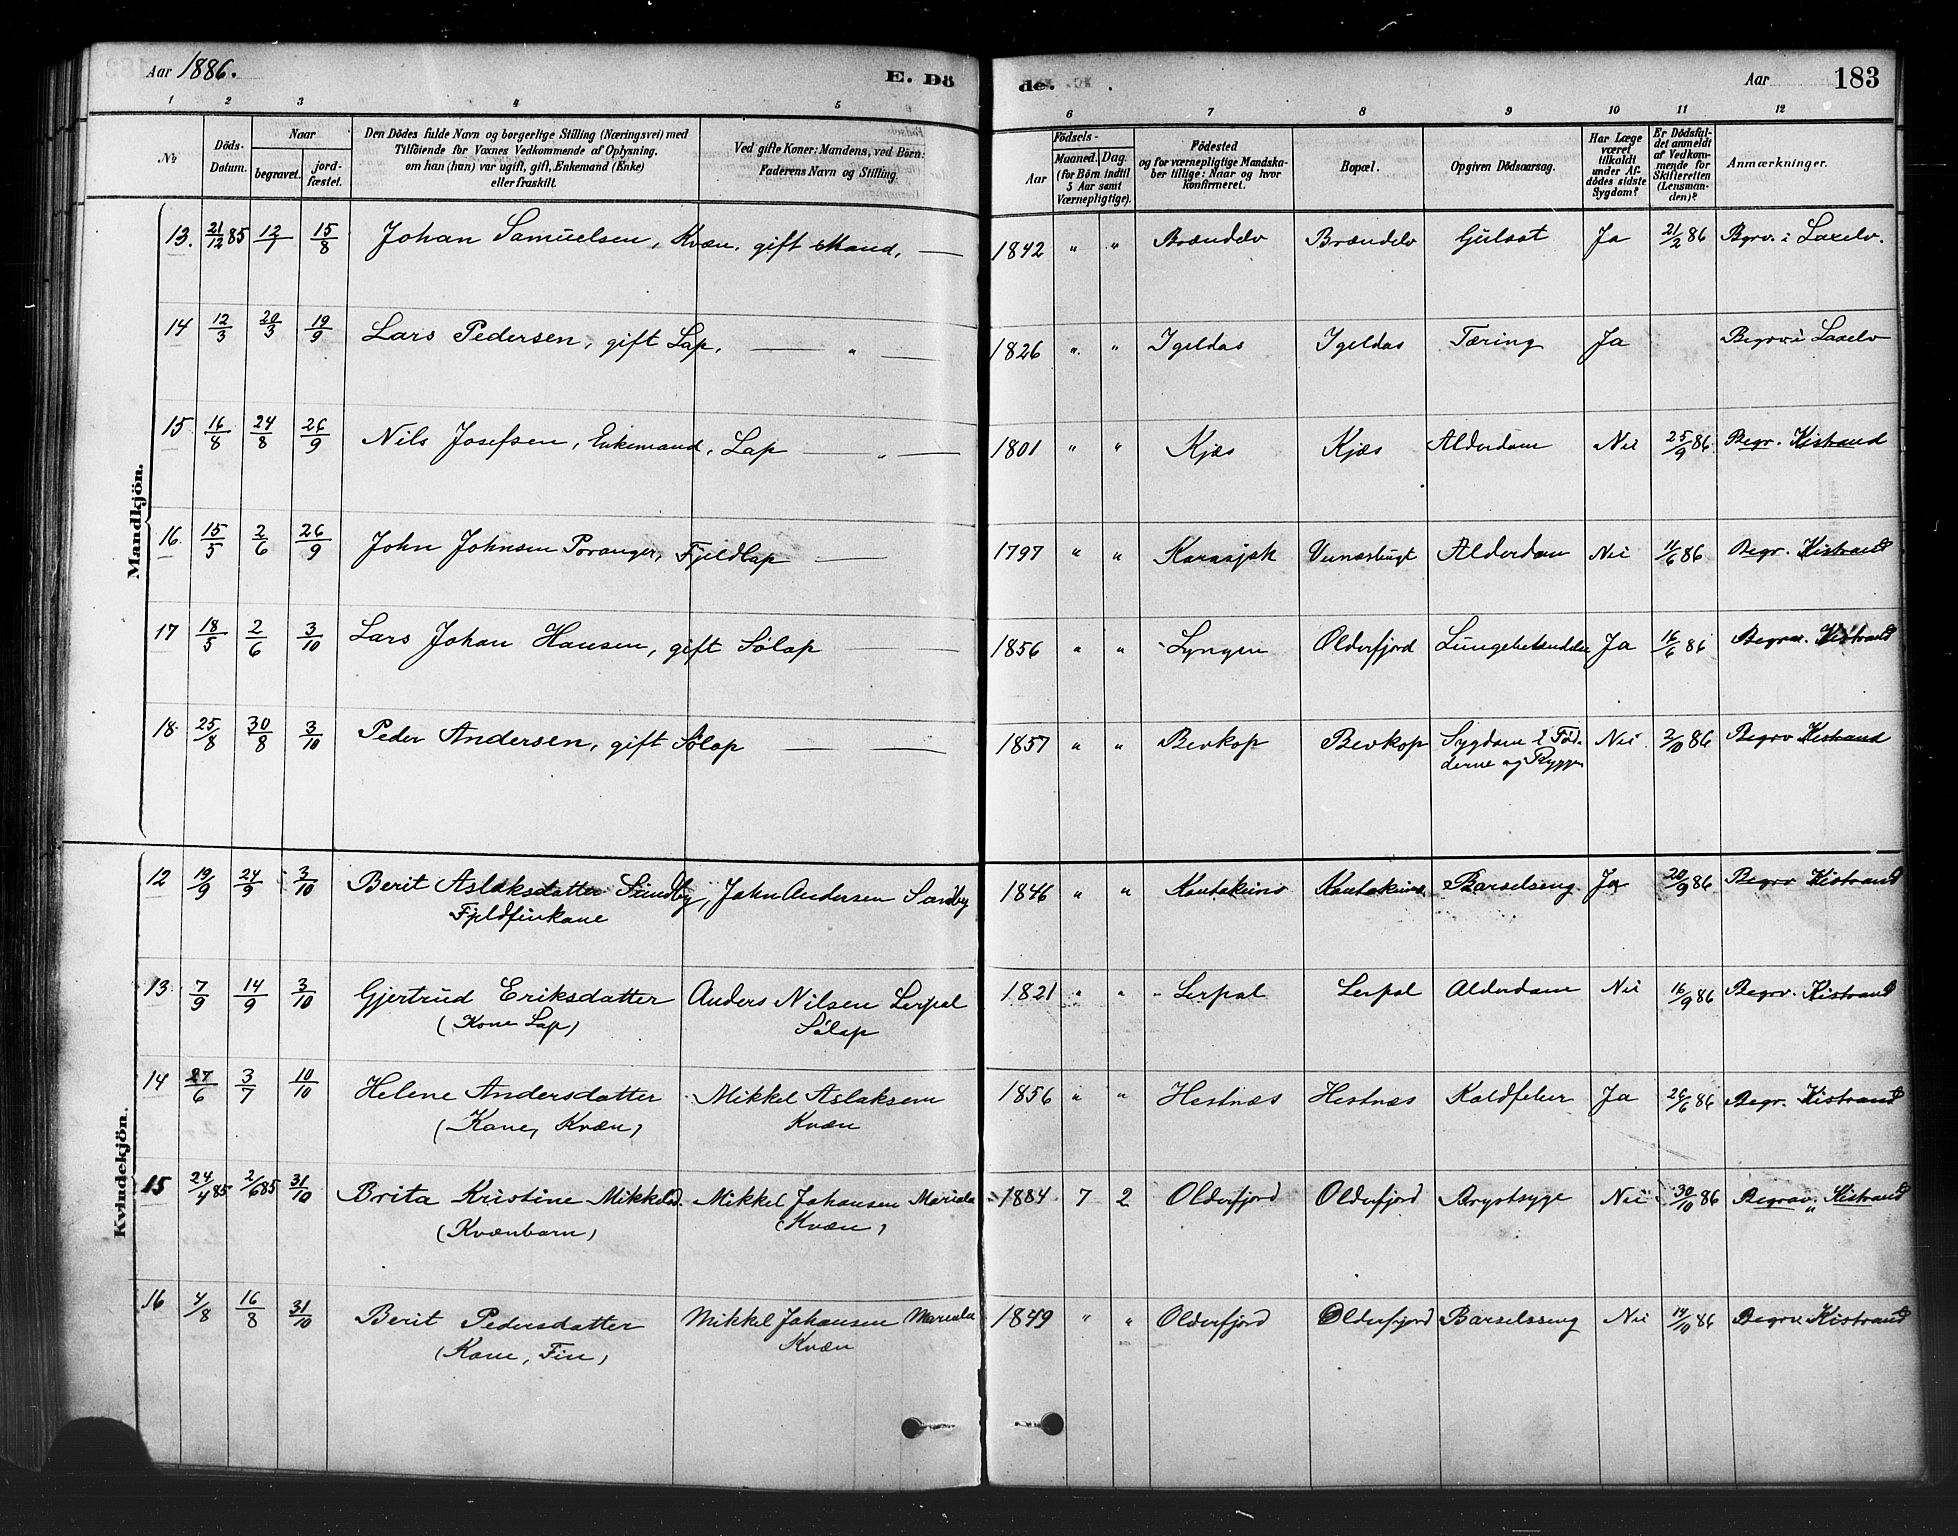 Aar 1886. E. Dö de. Aar 183
1 2 3 4 5 6 7 8 9 10 11 12
No Döds-Datum. Naar begravet. jord-fæstet. Den Dödes fulde Navn og borgerlige Stilling (Næringsvei) med Tilföiende for Voxnes Vedkommende af Oplysning, om han (hun) var ugift, gift, Enkemand (Enke) eller fraskilt. Ved gifte Koner: Mandens, ved Börn: Faderens Navn og Stilling. Födsels- Aar Maaned. Dag. (for Börn indtil 5 Aar samt Værnepligtige). Födested og for værnepligtige Mandska-ber tillige: Naar og hvor konfirmeret. Bopæl. Opgiven Dödsaarsag. Har Læge været tilkaldt under Af-dödes sidste Sygdom? Er Dödsfal-det anmeldt af Vedkom-mende for Skifteretten (Lensman-den)? Anmærkninger.
Mandkjön.
13. 21/12 85 12/1 15/8 Johan Samuelsen, Kvæn, gift Mand, — 1842 " " Brændelv Brændelv Gulsot Ja 21/2 86 Bgrv. i Laxelv.
14 12/3 20/3 19/9 Lars Pedersen, gift Lap, — " — 1826 " " Igeldas Igeldas Tæring Ja Begrv i Laxelv
15 16/8 24/8 26/9 Nils Josefsen, Enkemand, Lap — " — 1801 " " Kjæs Kjæs Alderdom Nei 25/9 86 Begr. Kistrand
16. 15/5 2/6 26/9 John Johnsen Poranger, Fjeldlap — 1797 " " Karasjok Alderdom Nei 11/6 86 Begr. Kistrand
17 18/5 2/6 3/10 Lars Johan Hansen, gift Sölap — 1856 " " Lyngen Olderfjord Ja 16/6 86 Begrv. Kistrand
18. 25/8 30/8 3/10 Peder Andersen, gift Sölap — 1857 " " Bevkop Bevkop Sygdom i Föd-
derne og Ryggen Nei 2/10 86 Begrv Kistrand
Kvindekjön.
12 19/9 24/9 3/10 Berit Aslaksdatter Sundby, John Andersen Sundby 1846 " " Kautokeino Kautokeino Barselseng. Ja 20/9 86 Begrv Kistrand
Fjeldfinkone
13. 7/9 14/9 3/10 Gjertrud Eriksdatter Anders Nilsen Lerpol 1821 " " Lerpol Lerpol Alderdom Nei 16/9 86 Begrv. Kistrand
(Kone Lap) Sölap
14 27/6 3/7 10/10 Helene Andersdatter Mikkel Aslaksen 1856 " " Hestnæs Hestnæs Koldfeber Ja 26/6 86 Begr. Kistrand
(Kone, Kvæn) Kvæn
15 24/4 85 2/6 85 31/10 Brita Kristine Mikkelsd. Mikkel Johansen Mariala 1884 7 2 Olderfjord Olderfjord Brystsyge Nei 30/10 86 Begrav. " Kistrand
(Kvænbarn) (Kvæn)
16 4/8 16/8 31/10 Berit Pedersdatter Mikkel Johansen Mariala 1849 " " Olderfjord Olderfjord Barselsseng Nei 14/10 86 Begrv. Kistrand
(Kone, Fin) Kvæn